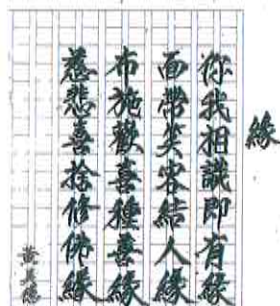 緣
你我相識即有緣
面帶笑容結人緣
布施歡喜種善緣
慈悲喜捨修佛緣